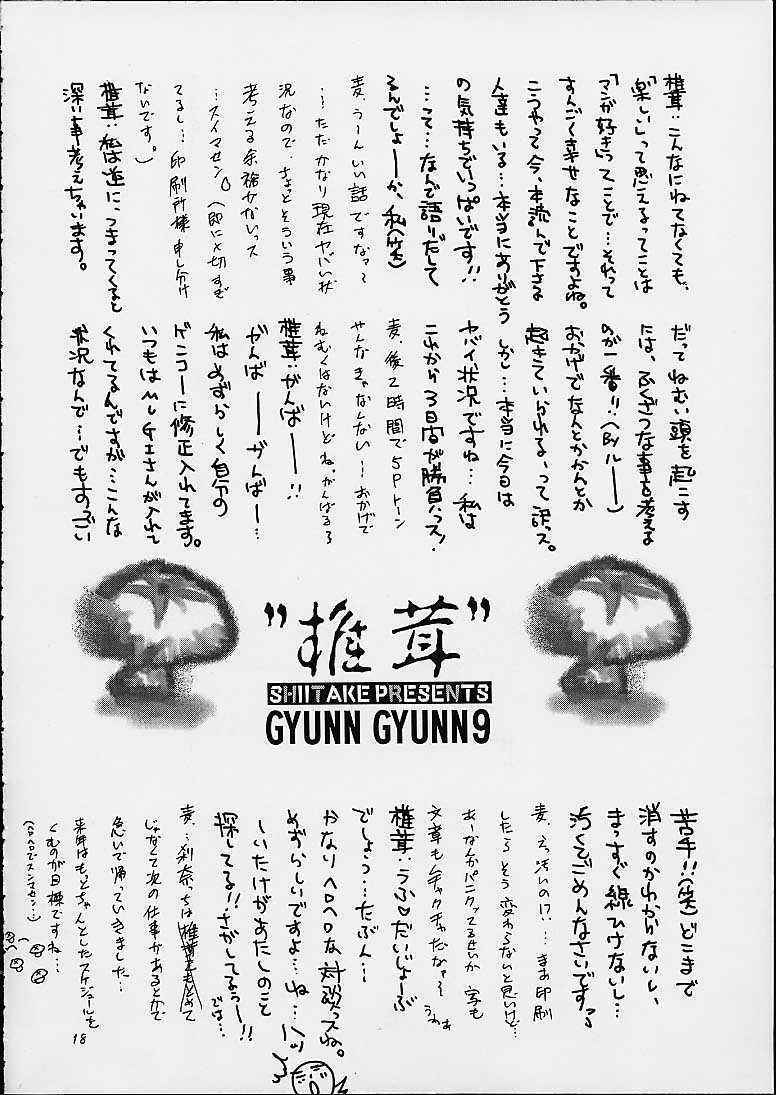 椎茸:こんなにねてなくても、
「楽しい」って思えるってことは
「マンガ好き」ってことで…それって
すんごく幸せなことですよね。
こうやって今、本読んで下さる
人達もいる…本当にありがとう
の気持ちでいっぱいです!!
…って…なんで語りだして
るんでしょーか、私(笑)
麦.うーんいい話ですなァ〜
…ただかなり現在ヤバい状
況なので、ちょっとそういう事
考える余裕がないっス
…スイマセン。(即に〆切すぎ
てるし…印刷所様申し分け
ないです。)
椎茸:私は逆に、つまってくると
深い事考えちゃいます。
だってねむい頭を起こす
には、ふくざつな事を考える
のが一番!!
おかげでなんとかかんとか
起きていられる、って訳っス。
しかし…本当に今日は
ヤバイ状況ですね…私は
これから3日間が勝負っス!
麦.後2時間で5Pトーン
やんなきゃなんない…おかげで
ねむくはないけどね.がんばるろ
椎茸:がんばーー!!
がんばーーがんばー…
私はめずらしく自分の
ゲンコーに修正入れてます。
いつもはMUGIさんが入れて
くれてるんですが…こんな
状況なんで…でもすっごい
"椎茸"
SHIITAKE PRESENTS
GYUNN GYUNN9
苦手!!(笑)どこまで
消すのかわからないし、
まっすぐ線ひけないし…
汚くてごめんなさいです〜
麦.えっ汚いの!?…まあ印刷
したらそう変わらないと思いけど…
あーなんかパニクッてるせいか字も
文章もメチャクチャだなァ〜
うわぁ
椎茸:うふ♡だいじょーぶ
でしょうっ…たぶん…
かなりヘロヘロな対談っスね。
めずらしいですよ…ね…ハッ!
しいたけがあたしのこと
探してる!!さがしてるぅー!!
では…
麦.…刹奈っちは椎茸をもとめて
じゃなくて次の仕事があるとかで
急いで帰っていきました…
来年はもっとちゃんとしたスケジュールを
くむのが目標ですね…
(ヘロヘロでスンマセン…)
18